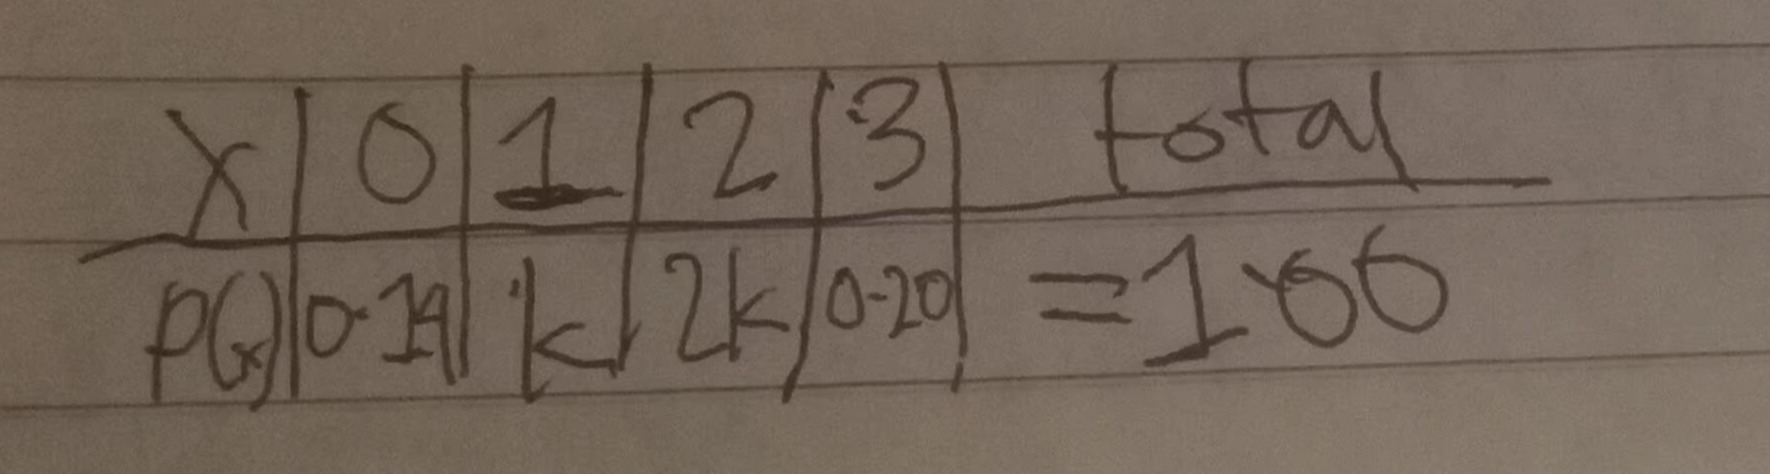 x 0 1 2 3 total
P(x) 0.19 k 2k 0.20 = 1.00